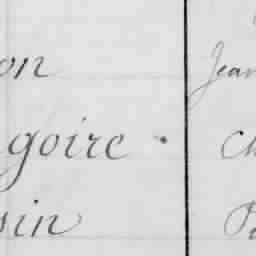 on Jean
goire .
sin